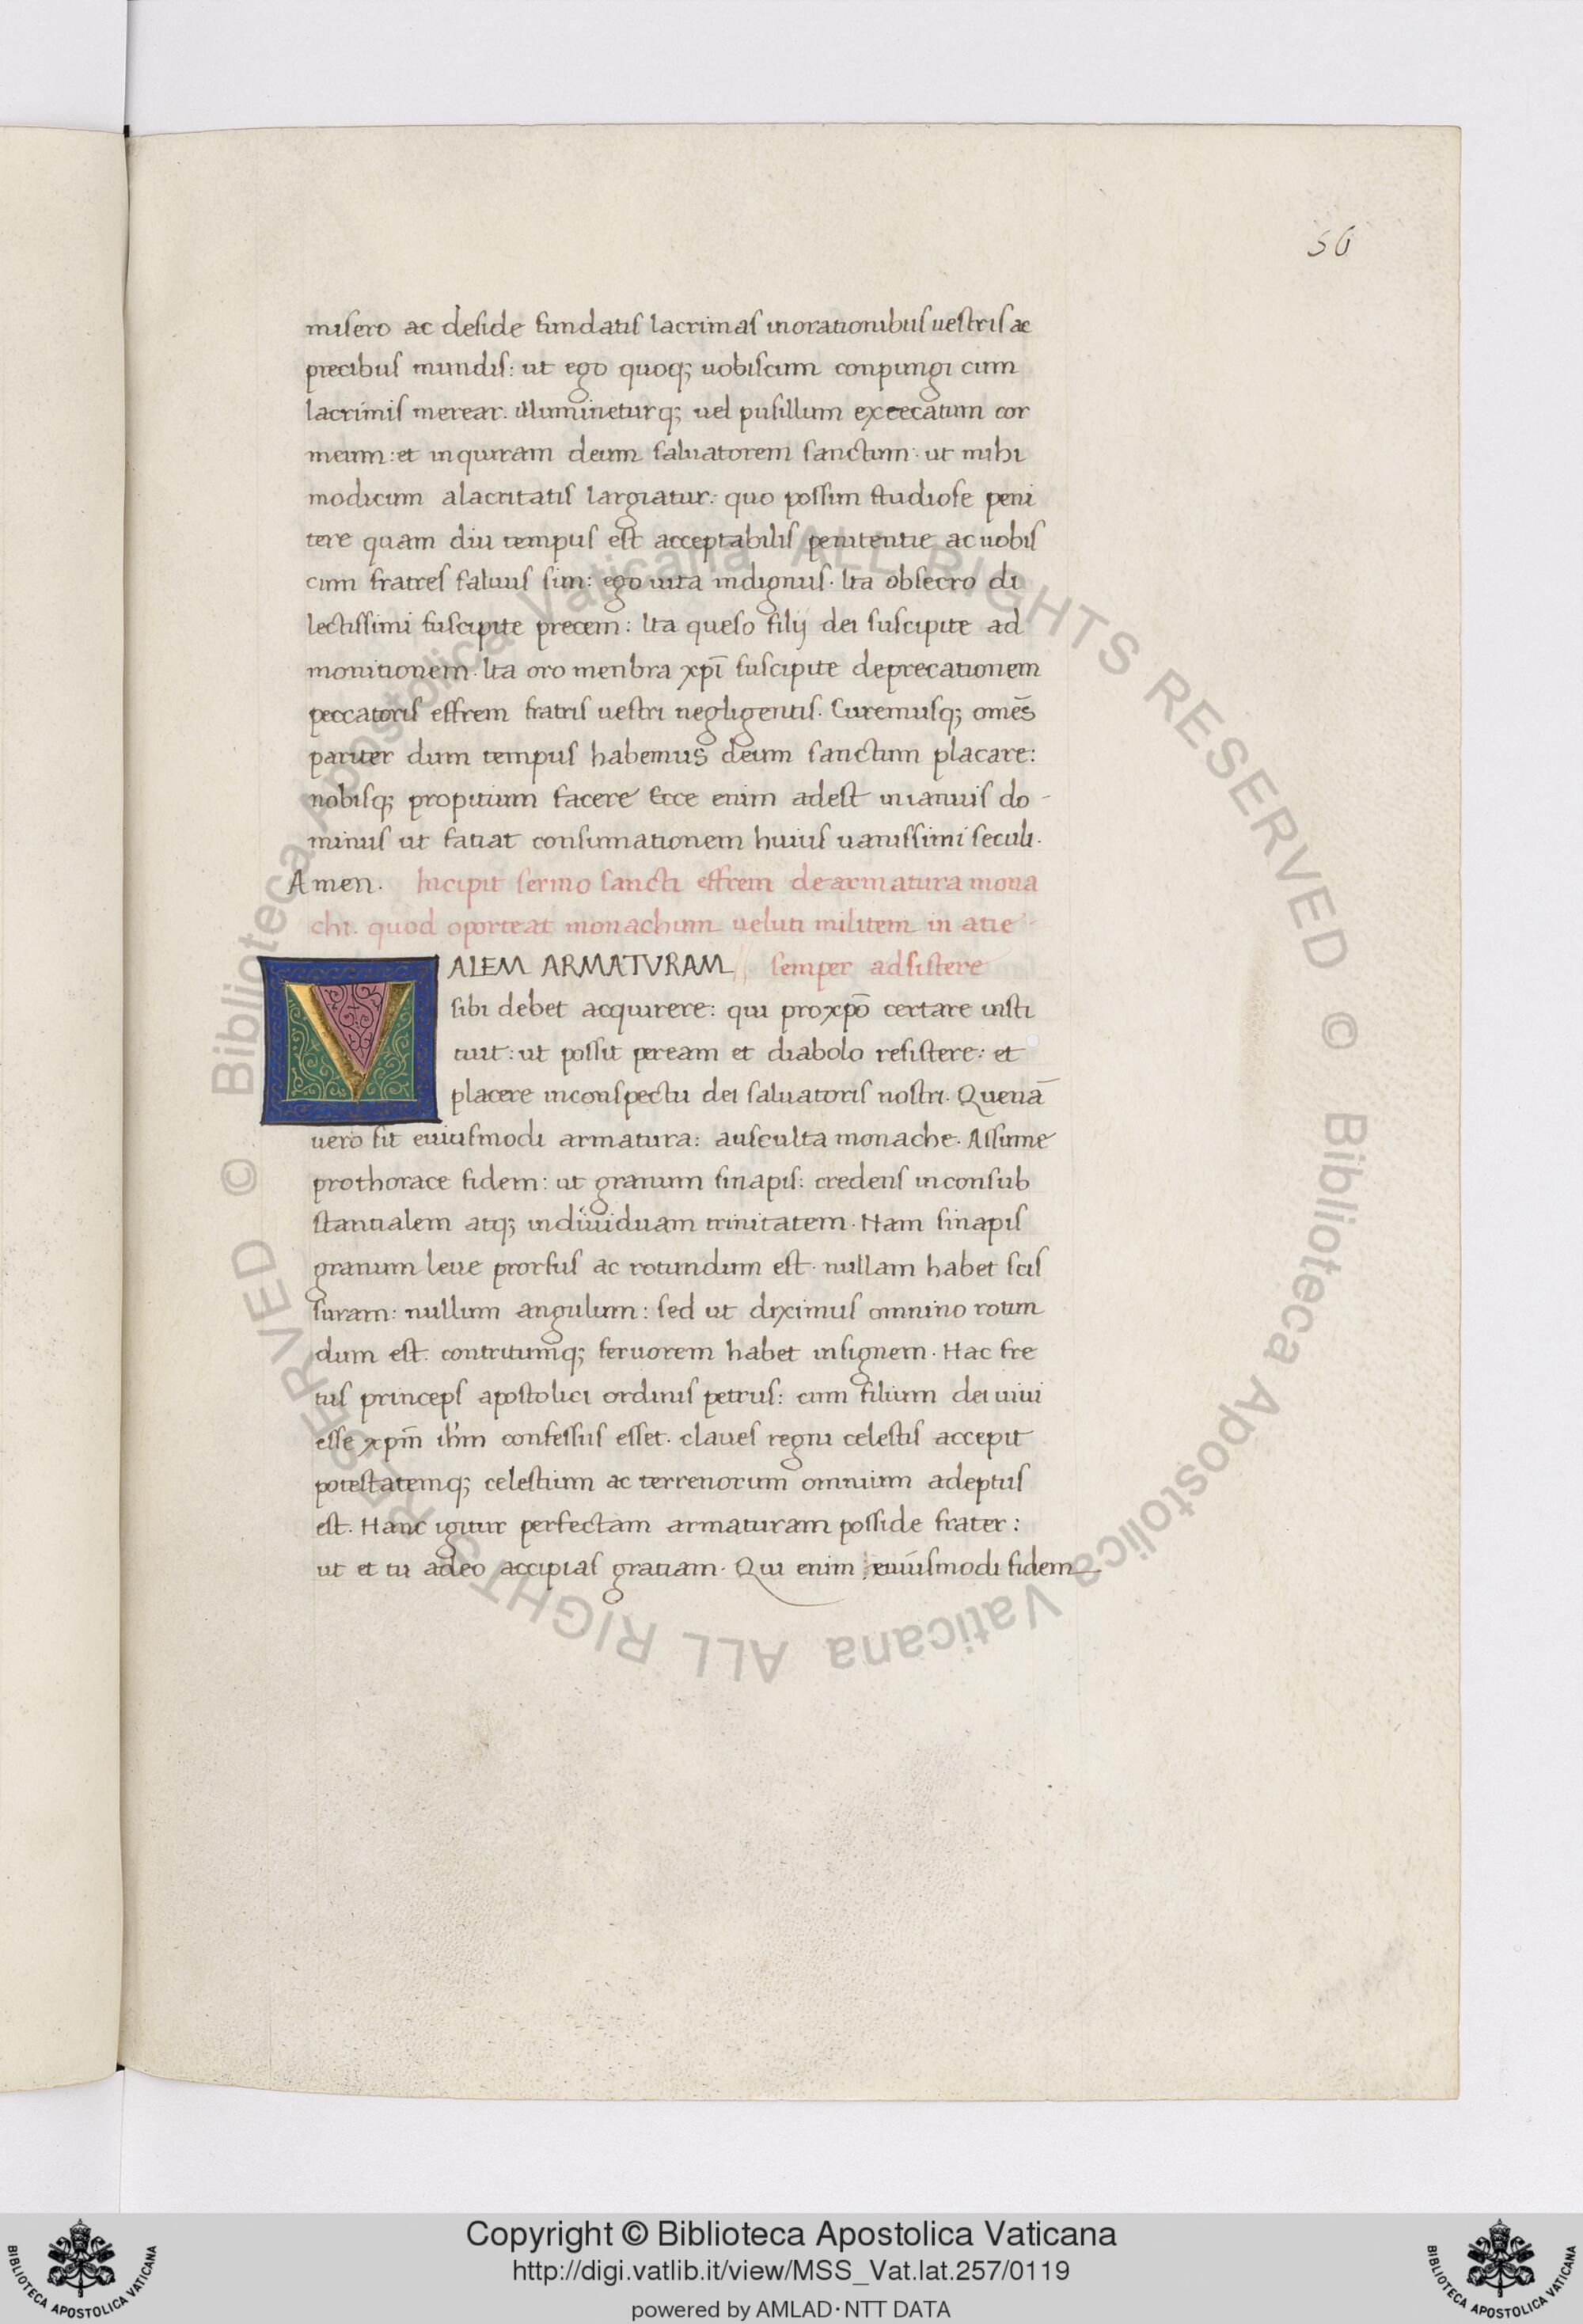 56
misero ac deside fundatis lacrimas inorationibus uestris ac
precibus mundis: ut ego quoq; uobiscum conpungi cum
lacrimis merear. illumineturq; uel pusillum excecatum cor
meum: et inquiram deum saluatorem sanctum: ut mihi
modicum alacritatis largiatur: quo possim studiose peni
tere quam diu tempus est acceptabilis penitentie ac uobis
cum fratres saluus sim: ego uita indignus. Ita obsecro di
lectissimi suscipite precem: Ita queso filij dei suscipite ad
monitionem. Ita oro menbra xpī suscipite deprecationem
peccatoris effrem fratris uestri negligentis. Curemusq; omēs
pariter dum tempus habemus deum sanctum placare:
nobisq; propitium facere Ecce enim adest inianuis do-
minus ut fatiat consumationem huius uanissimi seculi.
Amen. Incipit sermo sancti effrem dearmatura mona
chi. quod oporteat monachum ueluti militem in atie
VALEM ARMATVRAM semper adsistere
sibi debet acquirere: qui proxpō certare insti
tuit: ut possit peream et diabolo resistere: et
placere inconspectu dei saluatoris nostri. Quenā
uero sit euiusmodi armatura: ausculta monache. Assume
prothorace fidem: ut granum sinapis: credens inconsub
stantialem atq; indiuiduam trinitatem. Nam sinapis
granum leue prorsus ac rotundum est. nullam habet scis
suram: nullum angulum: sed ut diximus omnino rotun
dum est. contritumq; feruorem habet insignem. Hac fre
tus princeps apostolici ordinis petrus: cum filium dei uiui
esse xpm̄ ihm̄ confessus esset. claues regni celestis accepit
potestatemq; celestium ac terrenorum omnium adeptus
est. Hanc igitur perfectam armaturam posside frater:
ut et tu adeo accipias gratiam. Qui enim euiusmodi fidem
Biblioteca Apostolica Vaticana ALL RIGHTS RESERVED © Biblioteca Apostolica Vaticana ALL RIGHTS RESERVED ©
Copyright © Biblioteca Apostolica Vaticana
http://digi.vatlib.it/view/MSS_Vat.lat.257/0119
powered by AMLAD·NTT DATA
BIBLIOTECA APOSTOLICA VATICANA
BIBLIOTECA APOSTOLICA VATICANA